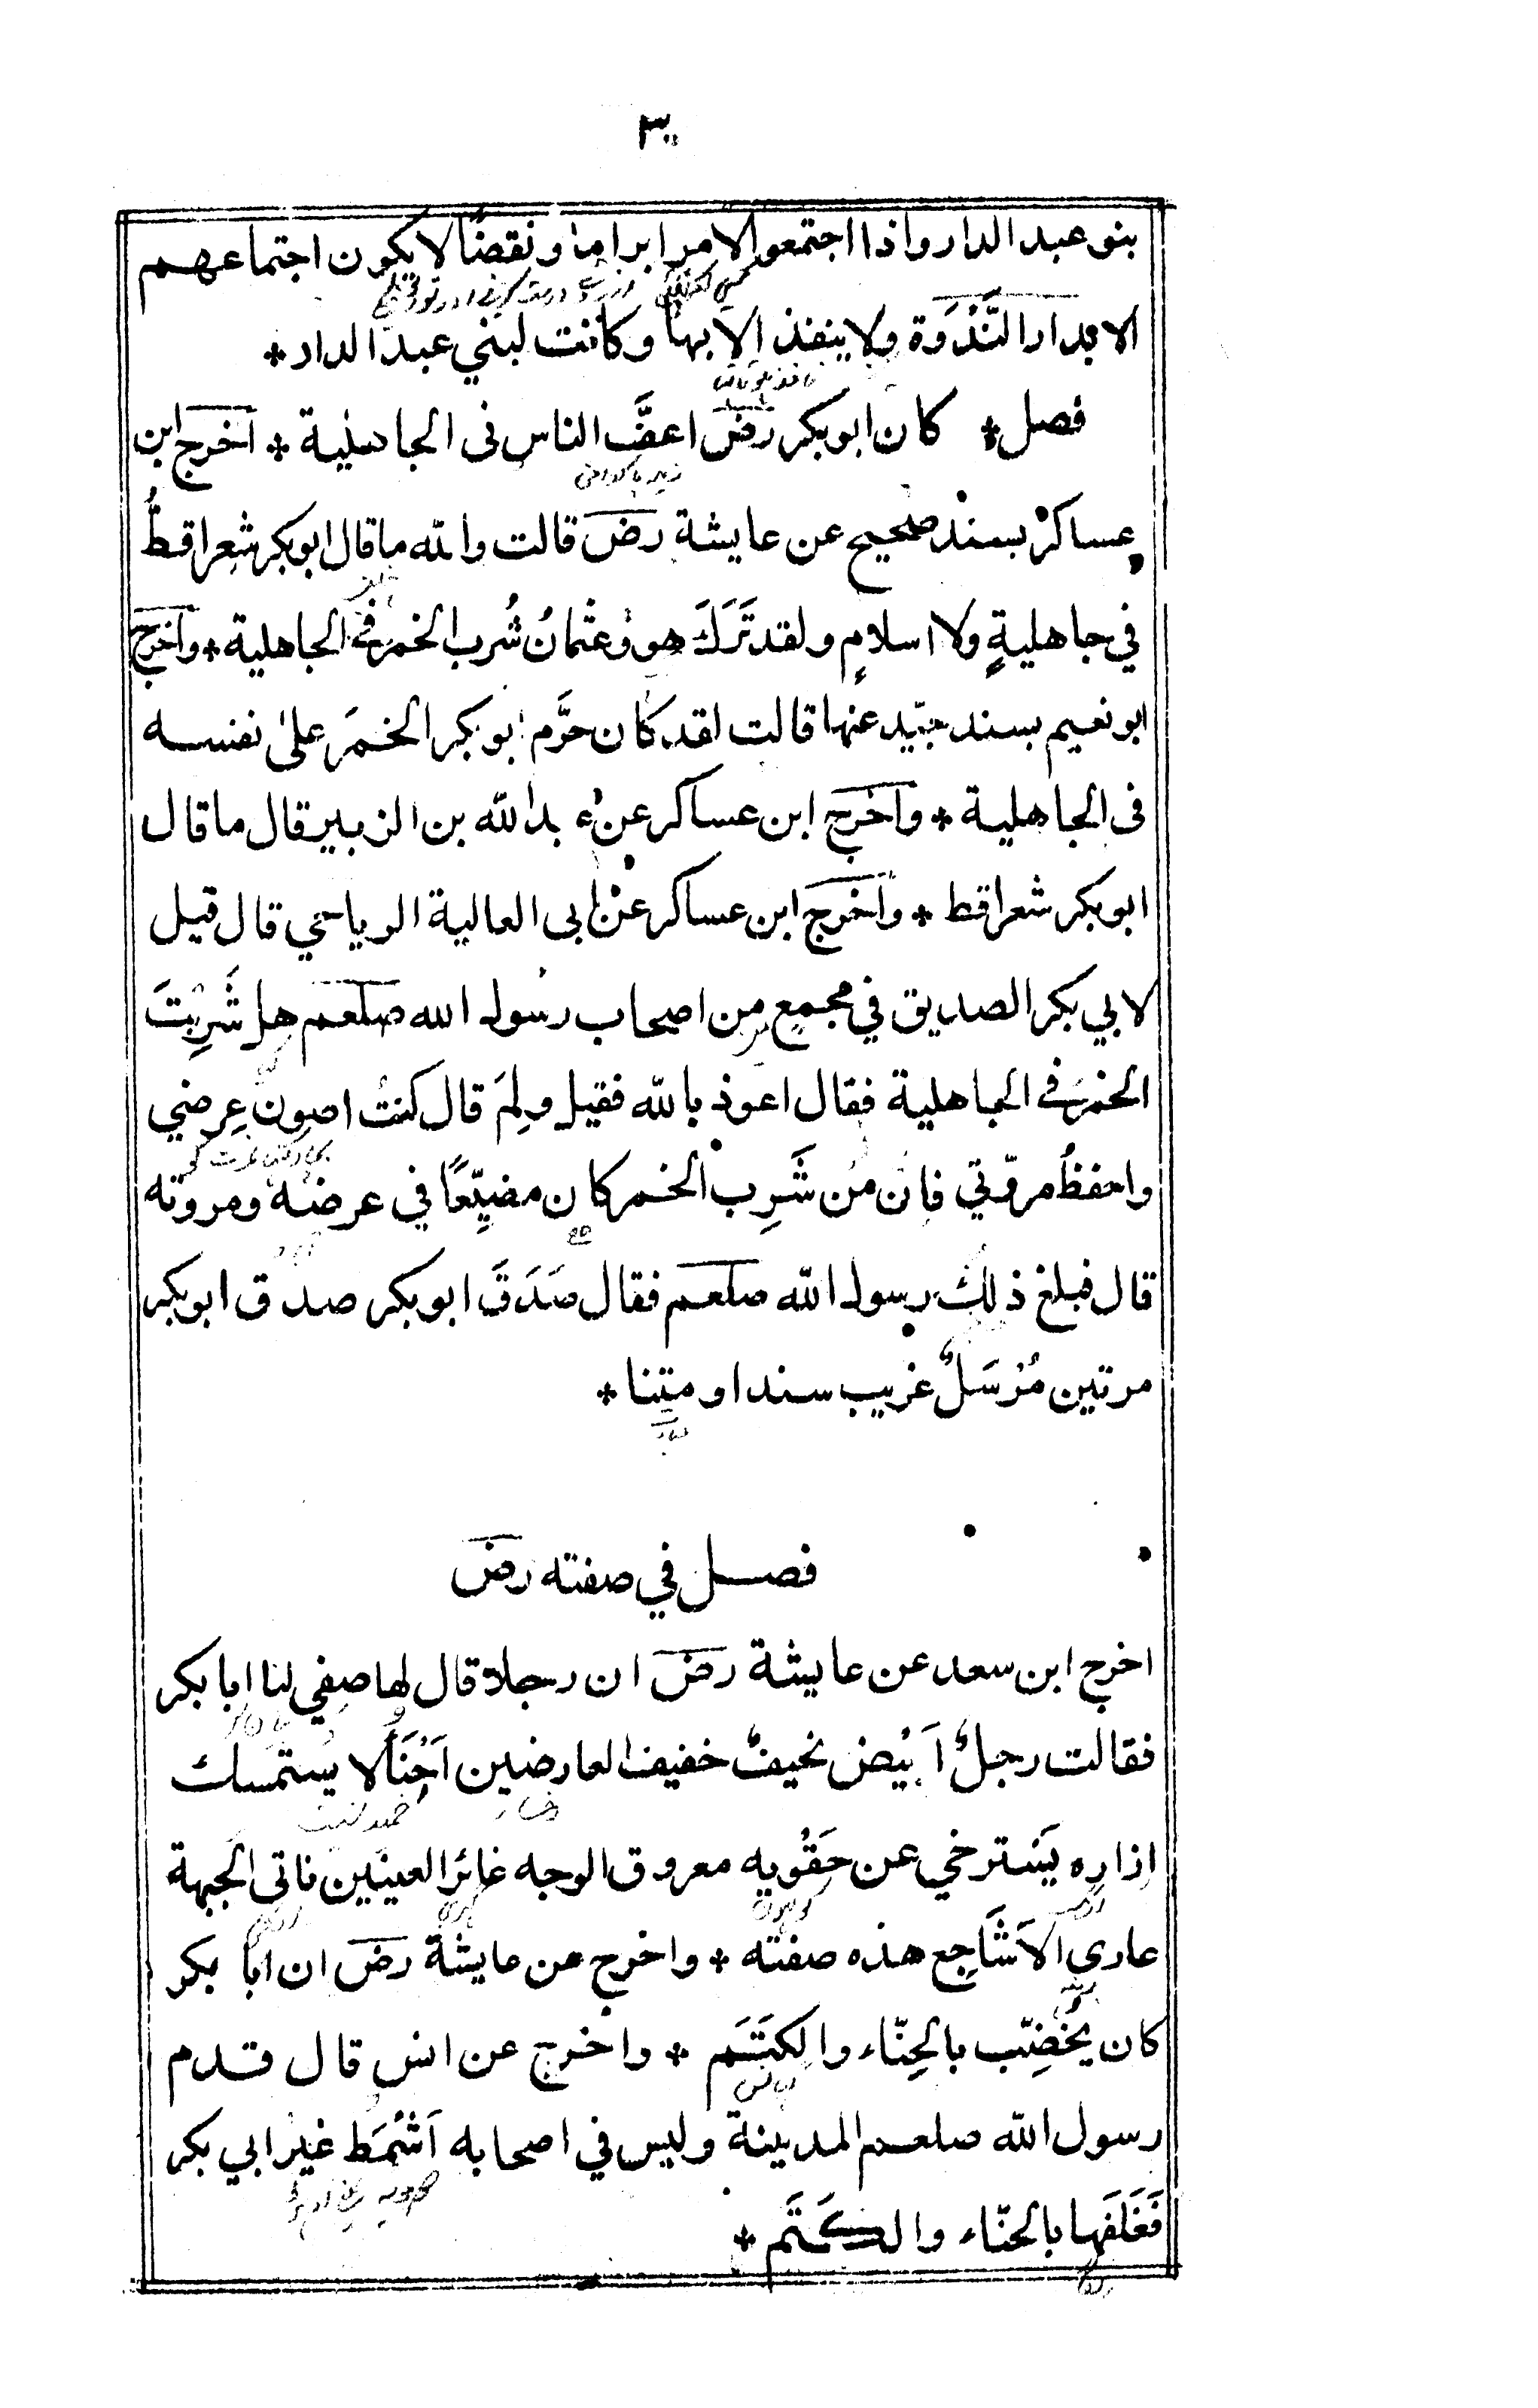 ٣٠
بنو عبد الدار واذا اجتمعوا لامر ابراما ونقضًا لا يكون اجتماعهم
الا بدار النَّدْوَة ولا ينفذ الا بها وكانت لبني عبد الدار *
فصل * كان ابو بكر رضـ اعفَّ الناس فى الجاهلية * اخرج ابن
عساكر بسند صحيح عن عايشة رضـ قالت والله ما قال ابو بكر شعرا قطُّ
في جاهليةٍ ولا اسلامٍ ولقد تَرَكَ هو وعثمانُ شُرب الخمر فى الجاهلية * واخرج
ابو نعيم بسند جيّد عنها قالت لقد كان حرَّم ابو بكر الخمرَ على نفسه
فى الجاهلية * واخرج ابن عساكر عن عبد الله بن الزبير قال ما قال
ابو بكر شعرا قط * واخرج ابن عساكر عنْ ابى العالية الرياحي قال قيل
لابي بكر الصديق في مجمع من اصحاب رسول الله صلعم هل شَرِبْتَ
الخمرَ فى الجاهلية فقال اعوذ بالله فقيل ولِمَ قال كنتُ اصون عِرضي
واحفظُ مروّتي فان من شَرِب الخمر كان مضيِّعًا في عرضه ومروته
قال فبلغ ذلك رسول الله صلعم فقال صَدَقَ ابو بكر صدق ابو بكر
مرتين مُرْسَلٌ غريب سندا ومتنا *
فصل في صفته رضـ
اخرج ابن سعد عن عايشة رضـ ان رجلا قال لها صِفي لنا ابا بكر
فقالت رجلٌ اَبْيض نحيفٌ خفيف العارضين اَجْنَأُ لا يستمسك
ازاره يَسترخي عن حَقْويه معروق الوجه غائر العينين ناتى الجبهة
عارى الاَشَاجِع هذه صفته * واخرج عن عايشة رضـ ان ابا بكر
كان يخضِّب بالحِنّاء والكَتَم * واخرج عن انس قال قدم
رسول الله صلعم المدينة وليس في اصحابه اَشْمَط غير ابي بكر
فَغَلَفَها بالحنّاء والكَتَم *